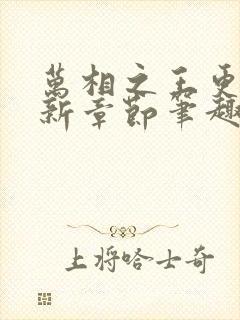 萬相之王更
新章節筆趣
上將哈士奇